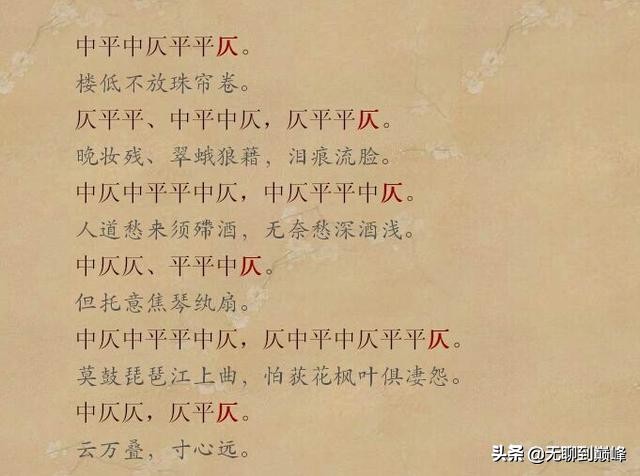 中平中仄平平仄。
楼低不放珠帘卷。
仄平平、中平中仄，仄平平仄。
晚妆残、翠蛾狼藉，泪痕流脸。
中仄中平平中仄，中仄平平中仄。
人道愁来须殢酒，无奈愁深酒浅。
中仄仄、平平中仄。
但托意焦琴纨扇。
中仄中平平中仄，仄中平中仄平平仄。
莫鼓琵琶江上曲，怕荻花枫叶俱凄怨。
中仄仄，仄平仄。
云万叠，寸心远。
头条 @无聊到巅峰